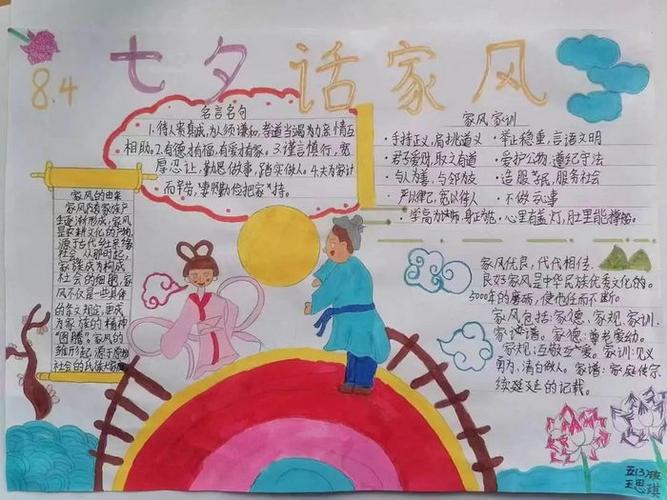 七夕话家风
8.4
名言名句
1.待人要真诚,为人须谦和,孝道当竭力,亲情互
相助。2.有德才有福,有爱才有家。3.谨言慎行,宽
厚忍让,勤恳做事,踏实做人。4.夫为家计
而辛苦,妻要勤俭把家持。
家风家训
·手持正义,肩挑道义
·举止稳重,言语文明
·君子爱财,取之有道
·爱护公物,遵纪守法
·与人为善,与邻为友
·造服务民,服务社会
严以律己,宽以待人
·不做亏事
·学高为师,身正为范
·心里有盏灯,肚里能撑船。
家风的由来
家风随家族产
生逐渐形成,家风
是农耕文化的产物,
源于古代乡土宗络
社会,从那时起,
家族成为构成
社会的细胞,家
风不仅是一些具体
的含义规定,更成
为家族的精神
"图腾"。家风的
雏形起源于原始
社会的氏族
家风优良,代代相传
良好家风是中华民族优秀文化的。
5000年的磨砺,使他往而不断。
家风包括:家德、家规、家训、
家谱。家德:尊老爱幼。
家规:互敬互爱。家训:见义
勇为,清白做人。家谱:家庭传宗
续延廷的记载。
五(3)班
王思琪